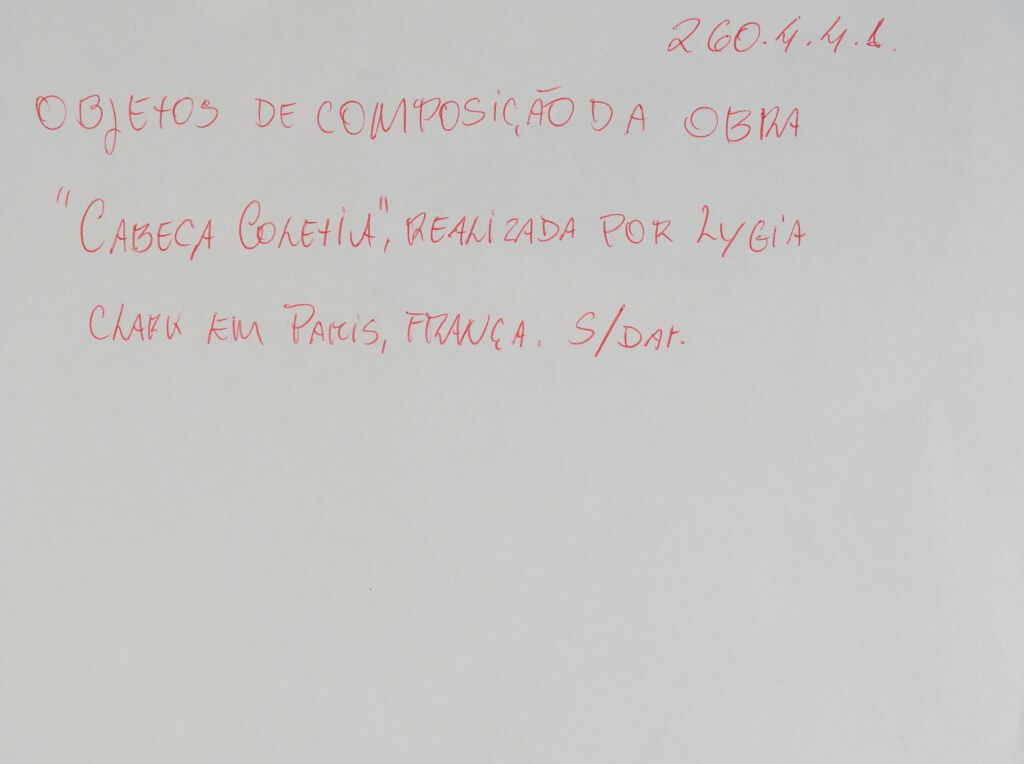 260.4.4.1.
OBJETOS DE COMPOSIÇÃO DA OBRA
"CABEÇA COLETIVA", REALIZADA POR LYGIA
CLARK EM PARIS, FRANÇA. S/DAT.